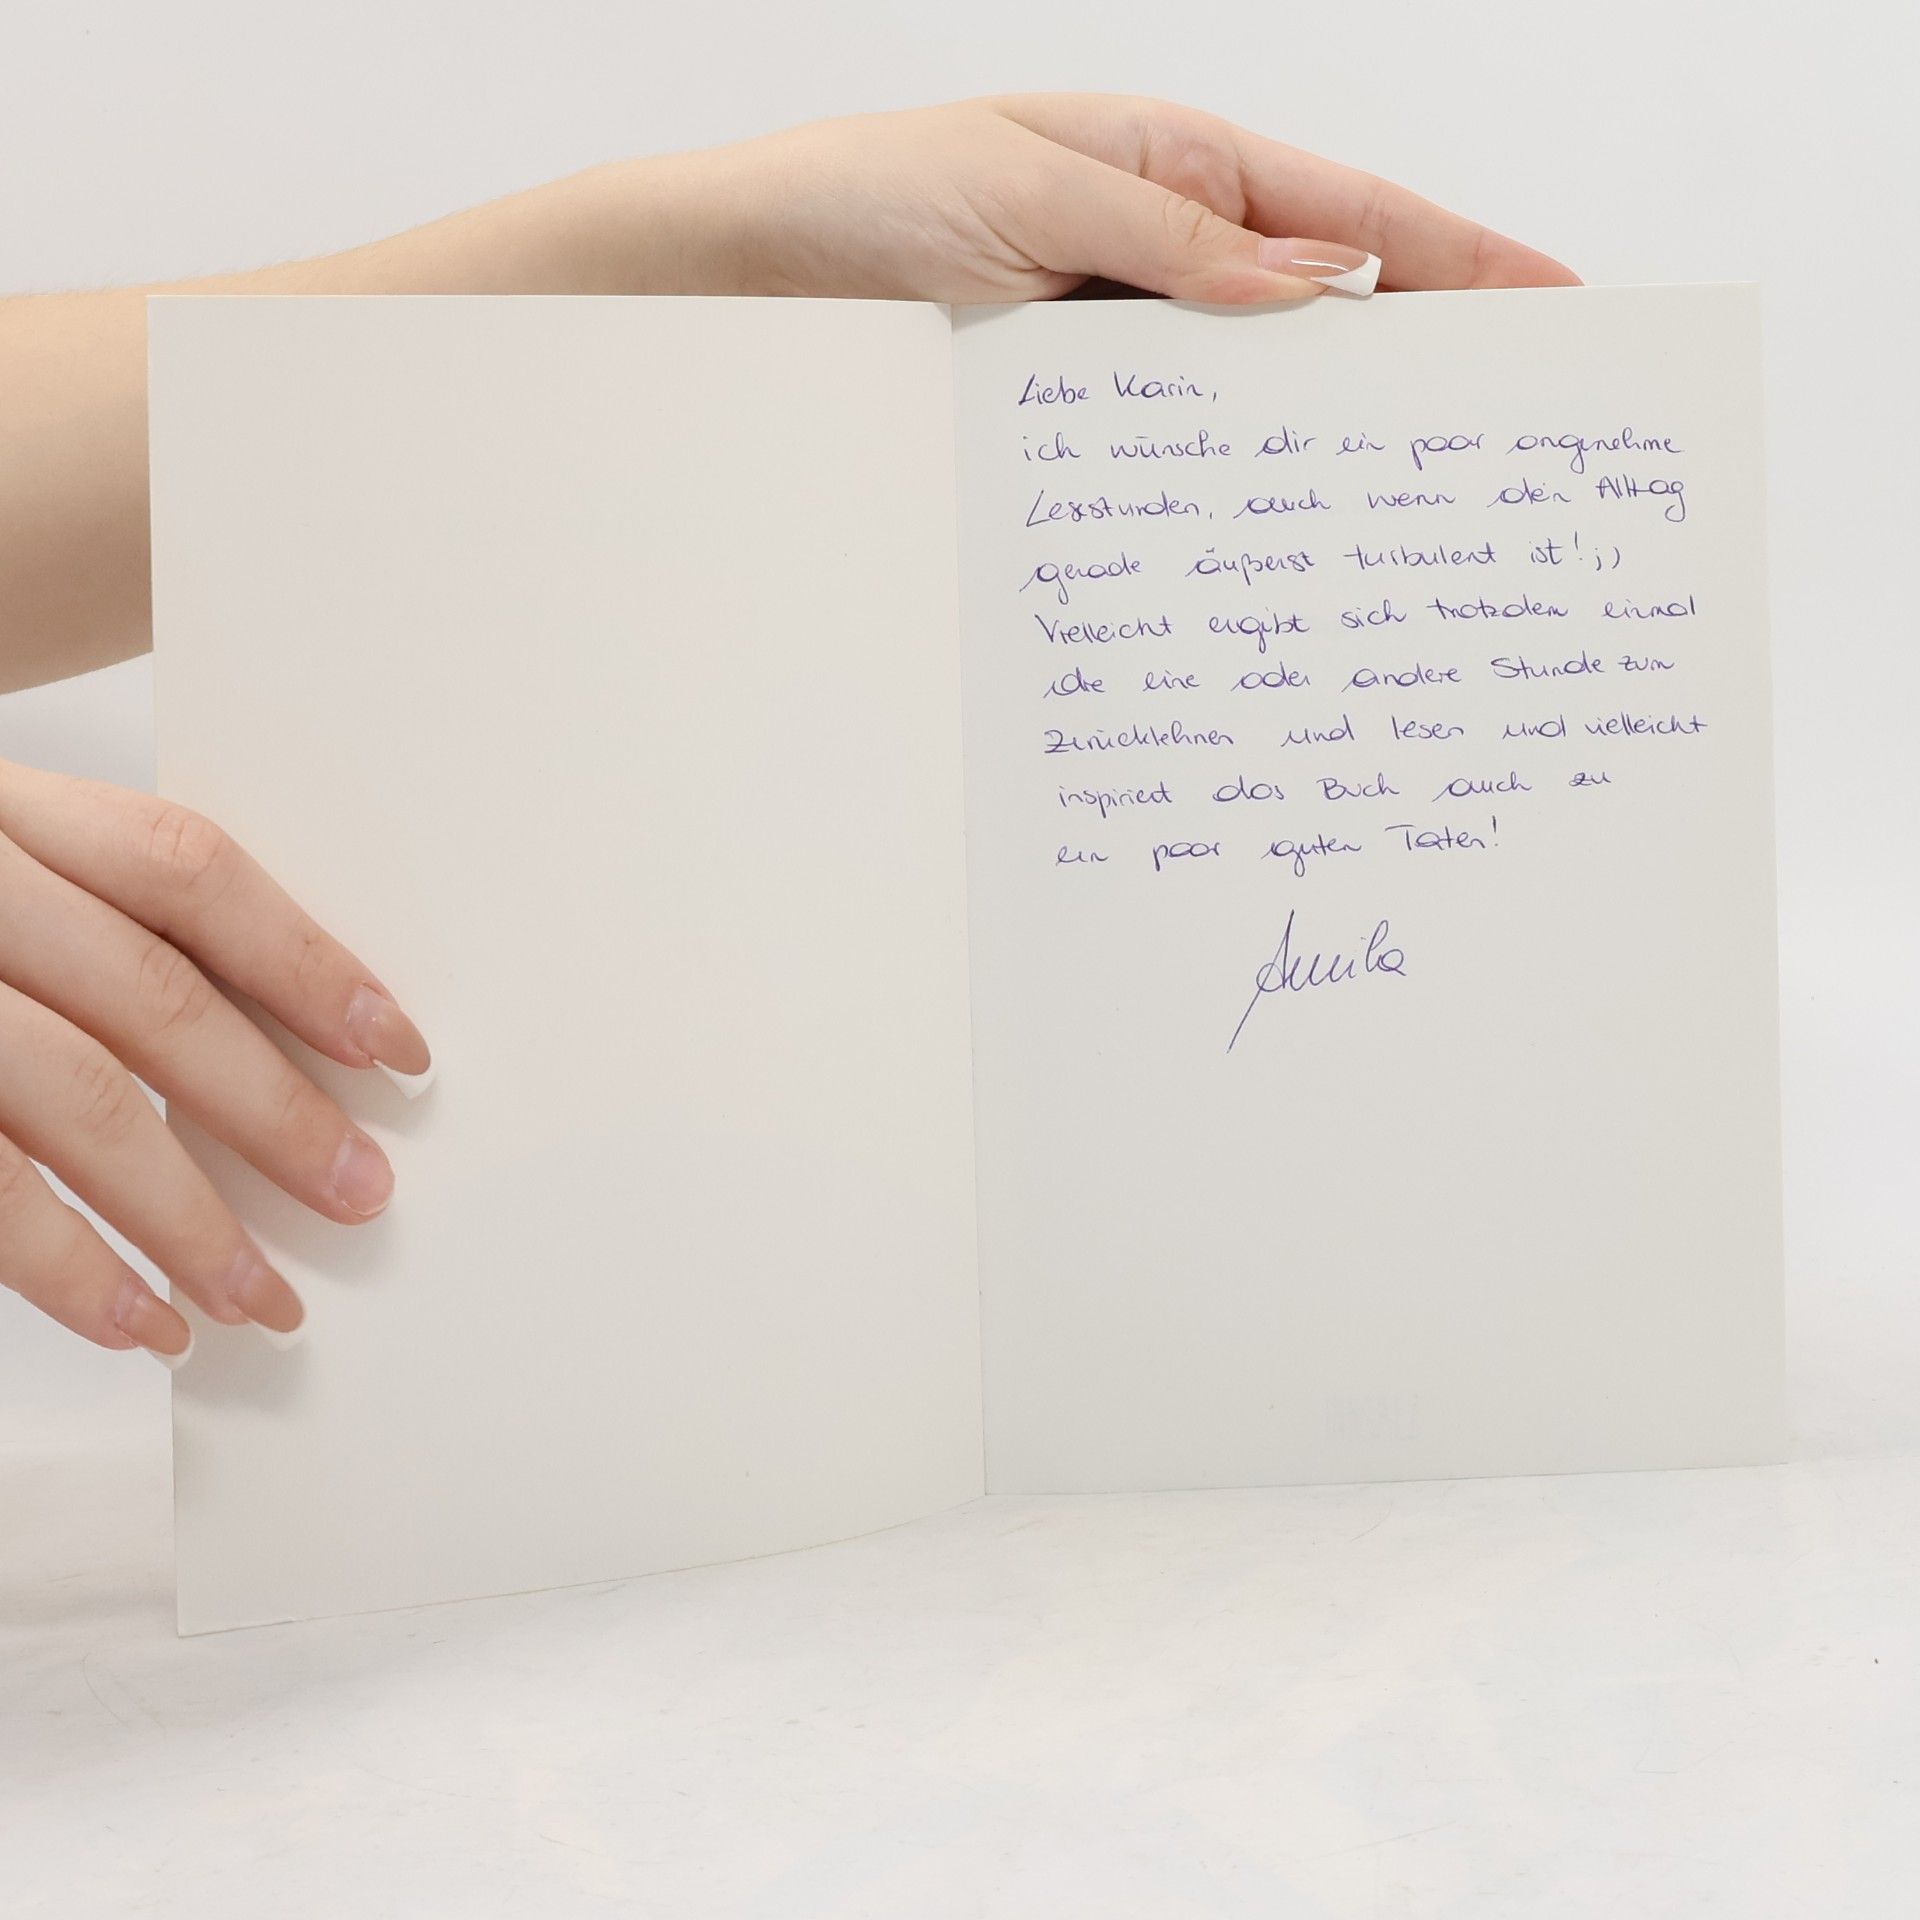 Liebe Karin,
ich wünsche dir ein paar angenehme
Lesestunden, auch wenn dein Alltag
gerade äußerst turbulent ist! ;)
Vielleicht ergibt sich trotzdem einmal
die eine oder andere Stunde zum
Zurücklehnen und lesen und vielleicht
inspiriert das Buch auch zu
ein paar guten Taten!